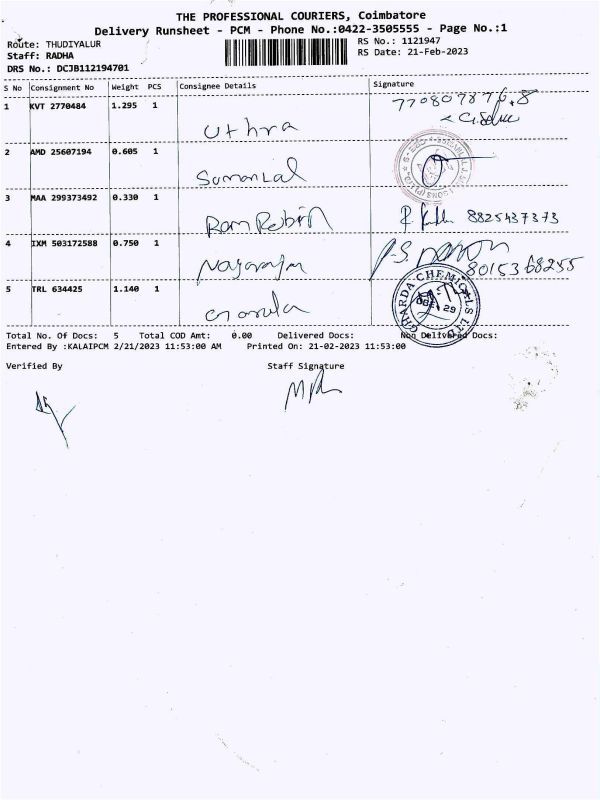 THE PROFESSIONAL COURIERS, Coimbatore
Delivery Runsheet - PCM - Phone No.:0422-3505555 - Page No.:1
Route: THUDIYALUR RS No.: 1121947
Staff: RADHA RS Date: 21-Feb-2023
DRS No.: DCJB112194701
S No Consignment No Weight PCS Consignee Details Signature
1 KVT 2770484 1.295 1
Uthra
2 AMD 25607194 0.605 1
SumanLal
3 MAA 299373492 0.330 1
Ram Rebin 8825437373
4 IXM 503172588 0.750 1
Nagarajan 8015368255
5 TRL 634425 1.140 1
GHARDA CHEMICALS LTD
Total No. Of Docs: 5 Total COD Amt: 0.00 Delivered Docs: Non Delivered Docs:
Entered By :KALAIPCM 2/21/2023 11:53:00 AM Printed On: 21-02-2023 11:53:00
Verified By Staff Signature